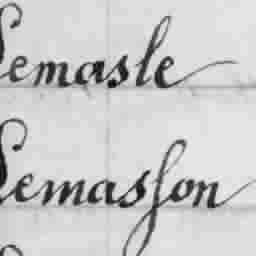 Lemasle
Lemasson